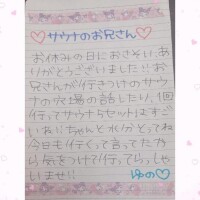 サウナのお兄さん
お休みの日におさそいあ
りがとうございました!!お
兄さんが行きつけのサウナ
の穴場の話したい、1回
行ってサウナ5セットはすご
いね!!ちゃんと水分とってね
今日も行くって言ってたか
ら気をつけて行ってらっしゃ
いませ!!
ゆの♡